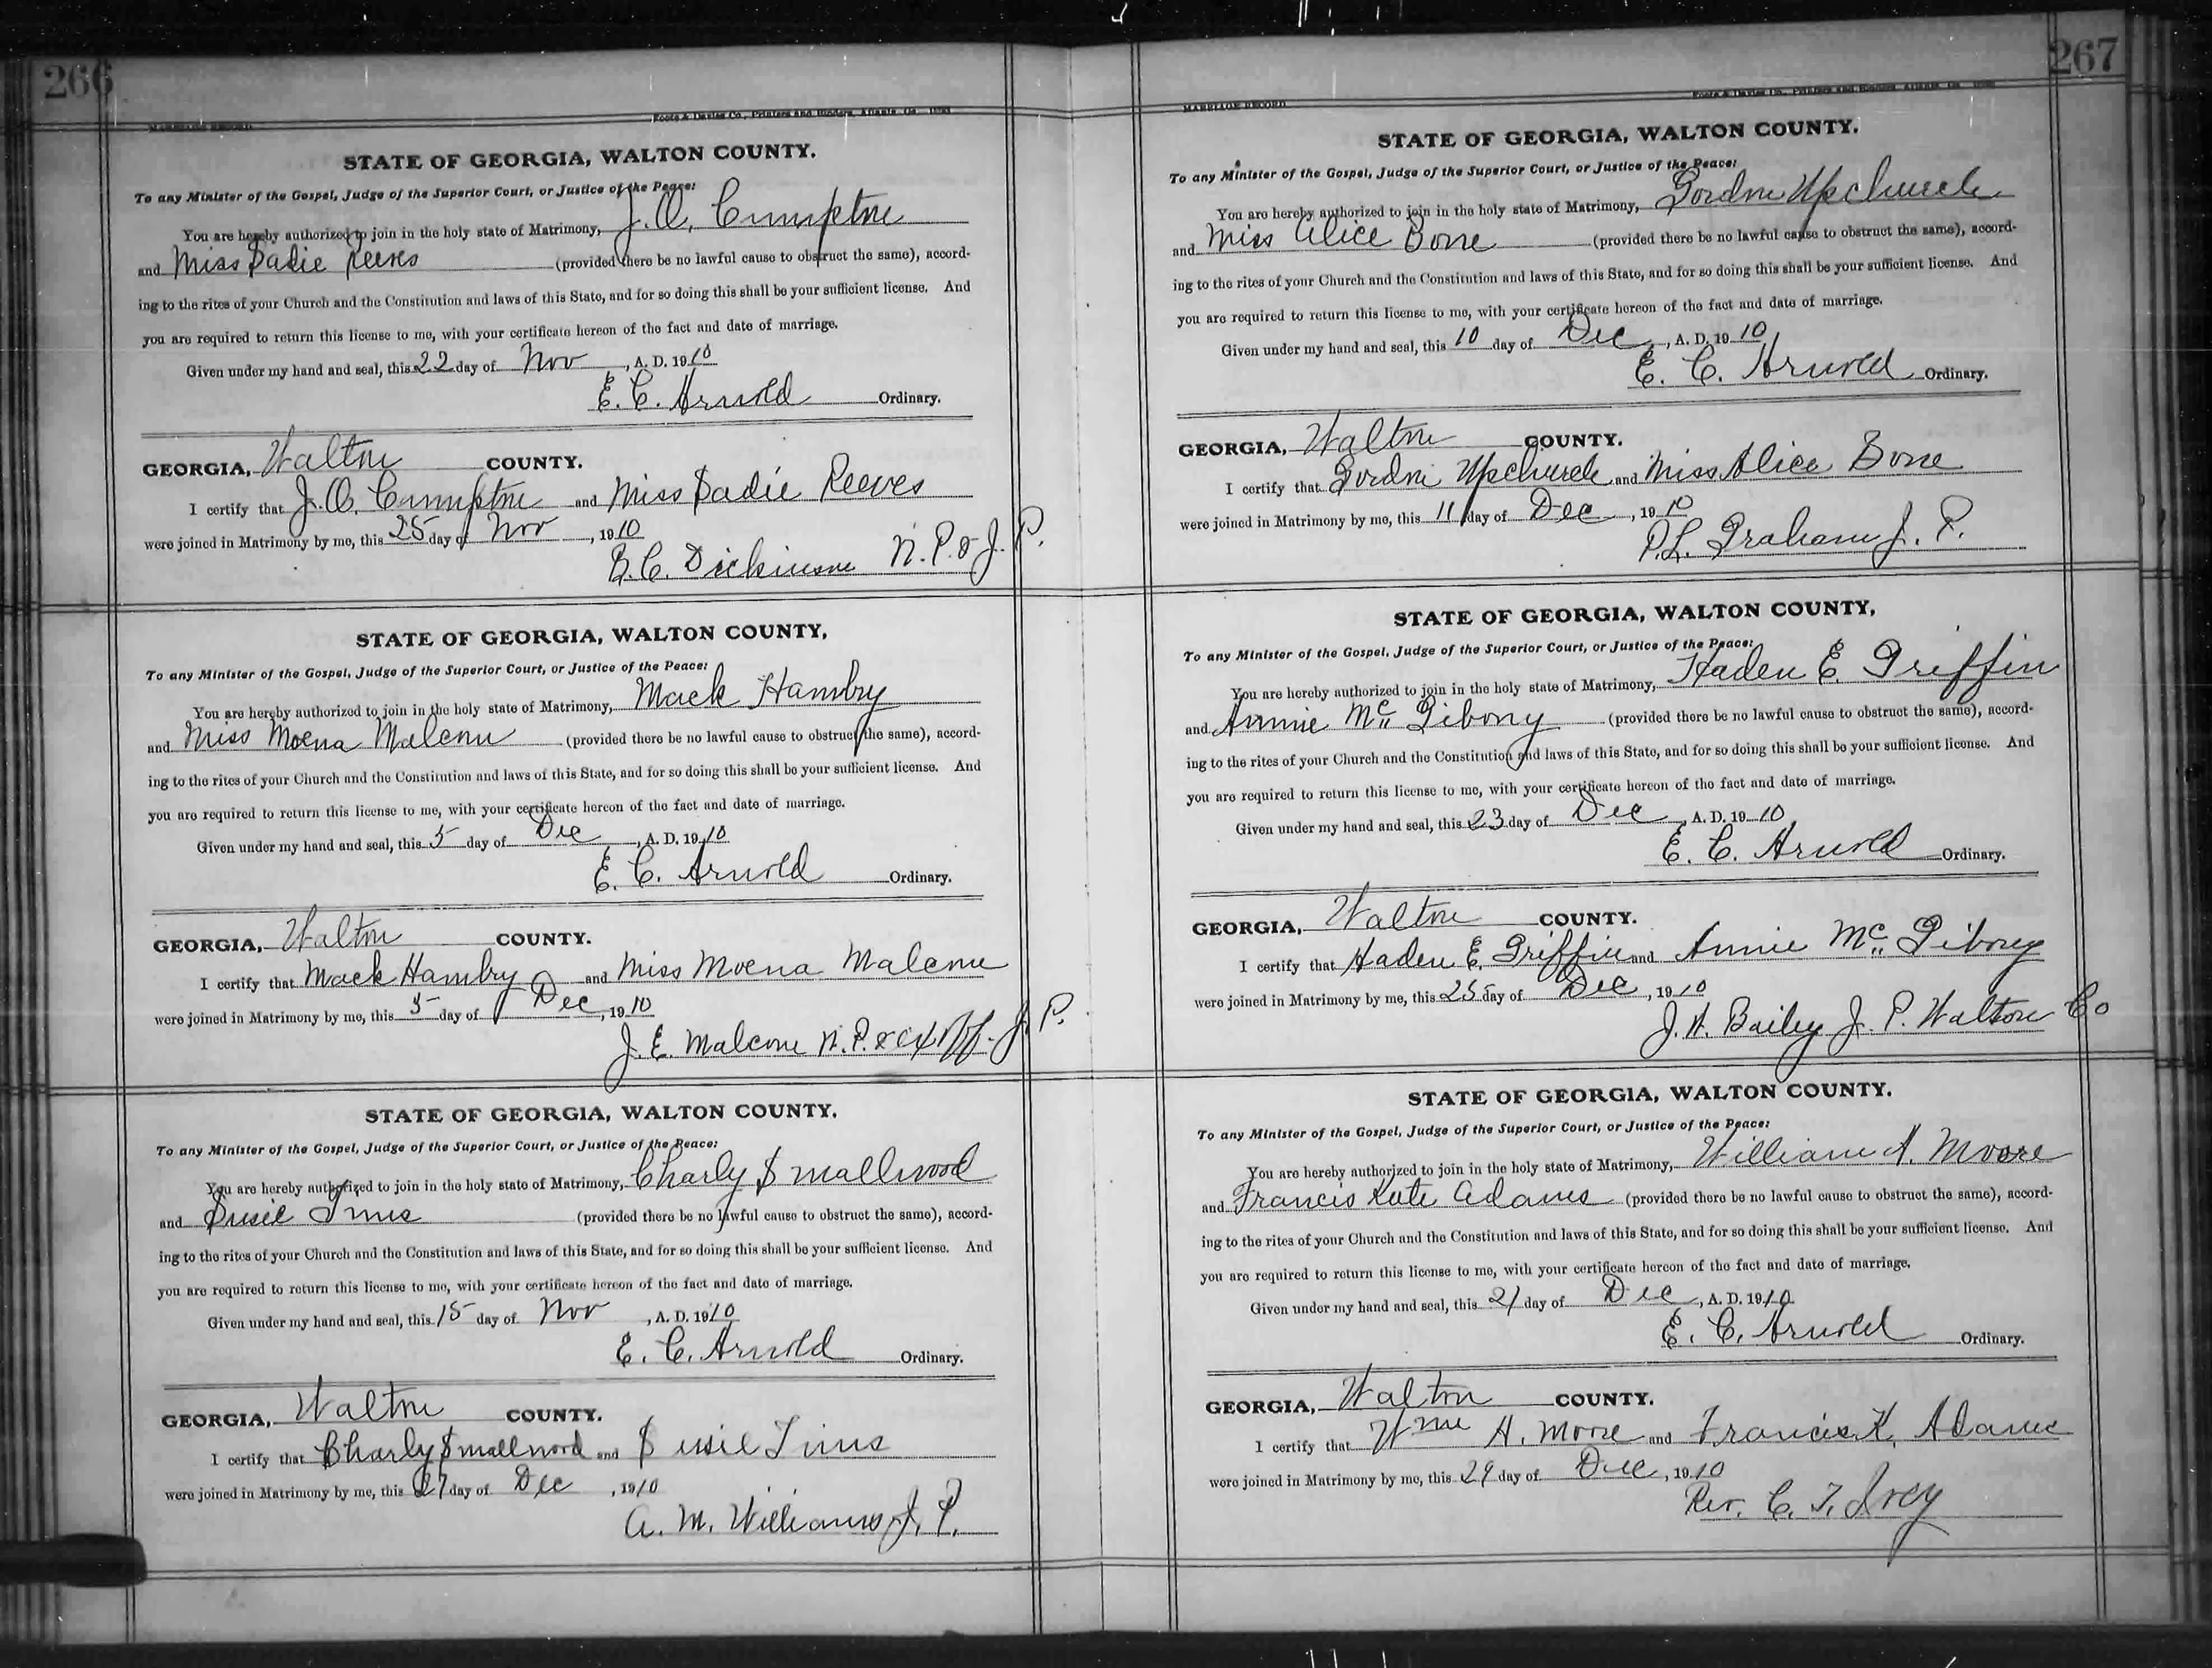 266
MARRIAGE RECORD
Foote & Davies Co., Printers and Binders, Atlanta, Ga.
STATE OF GEORGIA, WALTON COUNTY.
To any Minister of the Gospel, Judge of the Superior Court, or Justice of the Peace:
You are hereby authorized to join in the holy state of Matrimony, J. O. Cumpton
and Miss Sadie Reeves (provided there be no lawful cause to obstruct the same), accord-
ing to the rites of your Church and the Constitution and laws of this State, and for so doing this shall be your sufficient license. And
you are required to return this license to me, with your certificate hereon of the fact and date of marriage.
Given under my hand and seal, this 22 day of Nov, A. D. 1910
E. C. Arnold Ordinary.
GEORGIA, Walton COUNTY.
I certify that J. O. Cumpton and Miss Sadie Reeves
were joined in Matrimony by me, this 25 day of Nov, 1910
B. C. Dickinson N. P. & J. P.
STATE OF GEORGIA, WALTON COUNTY,
To any Minister of the Gospel, Judge of the Superior Court, or Justice of the Peace:
You are hereby authorized to join in the holy state of Matrimony, Mack Hambry
and Miss Moena Malcom (provided there be no lawful cause to obstruct the same), accord-
ing to the rites of your Church and the Constitution and laws of this State, and for so doing this shall be your sufficient license. And
you are required to return this license to me, with your certificate hereon of the fact and date of marriage.
Given under my hand and seal, this 5 day of Dec, A. D. 1910
E. C. Arnold Ordinary.
GEORGIA, Walton COUNTY.
I certify that Mack Hambry and Miss Moena Malcom
were joined in Matrimony by me, this 5 day of Dec, 1910
J. E. Malcom N. P. & ex off. J. P.
STATE OF GEORGIA, WALTON COUNTY.
To any Minister of the Gospel, Judge of the Superior Court, or Justice of the Peace:
You are hereby authorized to join in the holy state of Matrimony, Charly Smallwood
and Susie Tims (provided there be no lawful cause to obstruct the same), accord-
ing to the rites of your Church and the Constitution and laws of this State, and for so doing this shall be your sufficient license. And
you are required to return this license to me, with your certificate hereon of the fact and date of marriage.
Given under my hand and seal, this 15 day of Nov, A. D. 1910
E. C. Arnold Ordinary.
GEORGIA, Walton COUNTY.
I certify that Charly Smallwood and Susie Tims
were joined in Matrimony by me, this 27 day of Dec, 1910
A. M. Williams J. P.
267
MARRIAGE RECORD
Foote & Davies Co., Printers and Binders, Atlanta, Ga.
STATE OF GEORGIA, WALTON COUNTY.
To any Minister of the Gospel, Judge of the Superior Court, or Justice of the Peace:
You are hereby authorized to join in the holy state of Matrimony, Gordon Upchurch
and Miss Alice Bone (provided there be no lawful cause to obstruct the same), accord-
ing to the rites of your Church and the Constitution and laws of this State, and for so doing this shall be your sufficient license. And
you are required to return this license to me, with your certificate hereon of the fact and date of marriage.
Given under my hand and seal, this 10 day of Dec, A. D. 1910
E. C. Arnold Ordinary.
GEORGIA, Walton COUNTY.
I certify that Gordon Upchurch and Miss Alice Bone
were joined in Matrimony by me, this 11 day of Dec, 1910
P. L. Graham J. P.
STATE OF GEORGIA, WALTON COUNTY,
To any Minister of the Gospel, Judge of the Superior Court, or Justice of the Peace:
You are hereby authorized to join in the holy state of Matrimony, Haden E. Griffin
and Annie Mc Gibony (provided there be no lawful cause to obstruct the same), accord-
ing to the rites of your Church and the Constitution and laws of this State, and for so doing this shall be your sufficient license. And
you are required to return this license to me, with your certificate hereon of the fact and date of marriage.
Given under my hand and seal, this 23 day of Dec, A. D. 1910
E. C. Arnold Ordinary.
GEORGIA, Walton COUNTY.
I certify that Haden E. Griffin and Annie Mc Gibony
were joined in Matrimony by me, this 25 day of Dec, 1910
J. H. Bailey J. P. Walton Co
STATE OF GEORGIA, WALTON COUNTY.
To any Minister of the Gospel, Judge of the Superior Court, or Justice of the Peace:
You are hereby authorized to join in the holy state of Matrimony, William A. Moore
and Francis Kate Adams (provided there be no lawful cause to obstruct the same), accord-
ing to the rites of your Church and the Constitution and laws of this State, and for so doing this shall be your sufficient license. And
you are required to return this license to me, with your certificate hereon of the fact and date of marriage.
Given under my hand and seal, this 21 day of Dec, A. D. 1910
E. C. Arnold Ordinary.
GEORGIA, Walton COUNTY.
I certify that Wm A. Moore and Francis K. Adams
were joined in Matrimony by me, this 29 day of Dec, 1910
Rev. C. T. Ivey